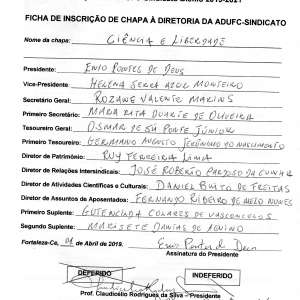 FICHA DE INSCRIÇÃO DE CHAPA À DIRETORIA DA ADUFC-SINDICATO
Nome da chapa: CIÊNCIA E LIBERDADE
Presidente: ENIO PONTES DE DEUS
Vice-Presidente: HELENA SERRA AZUL MONTEIRO
Secretário Geral: ROZANE VALENTE MARINS
Primeiro Secretário: MARIA RITA DUARTE DE OLIVEIRA
Tesoureiro Geral: OSMAR DE SÁ PONTE JÚNIOR
Primeiro Tesoureiro: GERMANO AUGUSTO JERÔNIMO DO NASCIMENTO
Diretor de Patrimônio: RUY FERREIRA LIMA
Diretor de Relações Intersindicais: JOSÉ ROBERTO CARDOSO DA CUNHA
Diretor de Atividades Científicas e Culturais: DANIEL BRITO DE FREITAS
Diretor de Assuntos de Aposentados: FERNANDO RIBEIRO DE MELO NUNES
Primeiro Suplente: COLARES DE VASCONCELOS
Segundo Suplente: MARISETE DANTAS DE AQUINO
Fortaleza-Ce, de Abril de 2019. Enio Pontes de Deus
Assinatura do Presidente
DEFERIDO INDEFERIDO
Prof. Claudicélio Rodrigues da Silva – Presidente